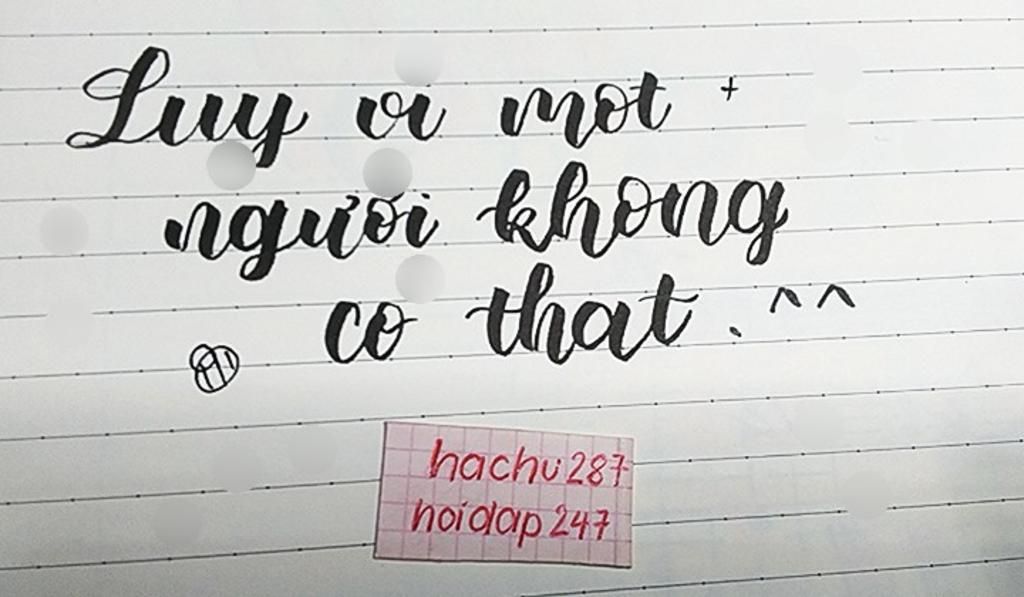 Luuy vi mot +
người khong
co that . ^^
hachu287
hoidap247